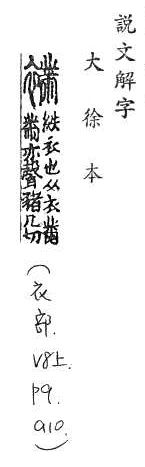 説文解字
大徐本
紩衣也从衣黹
黹亦聲豬几切
(衣部. V8上. p9. a10.)